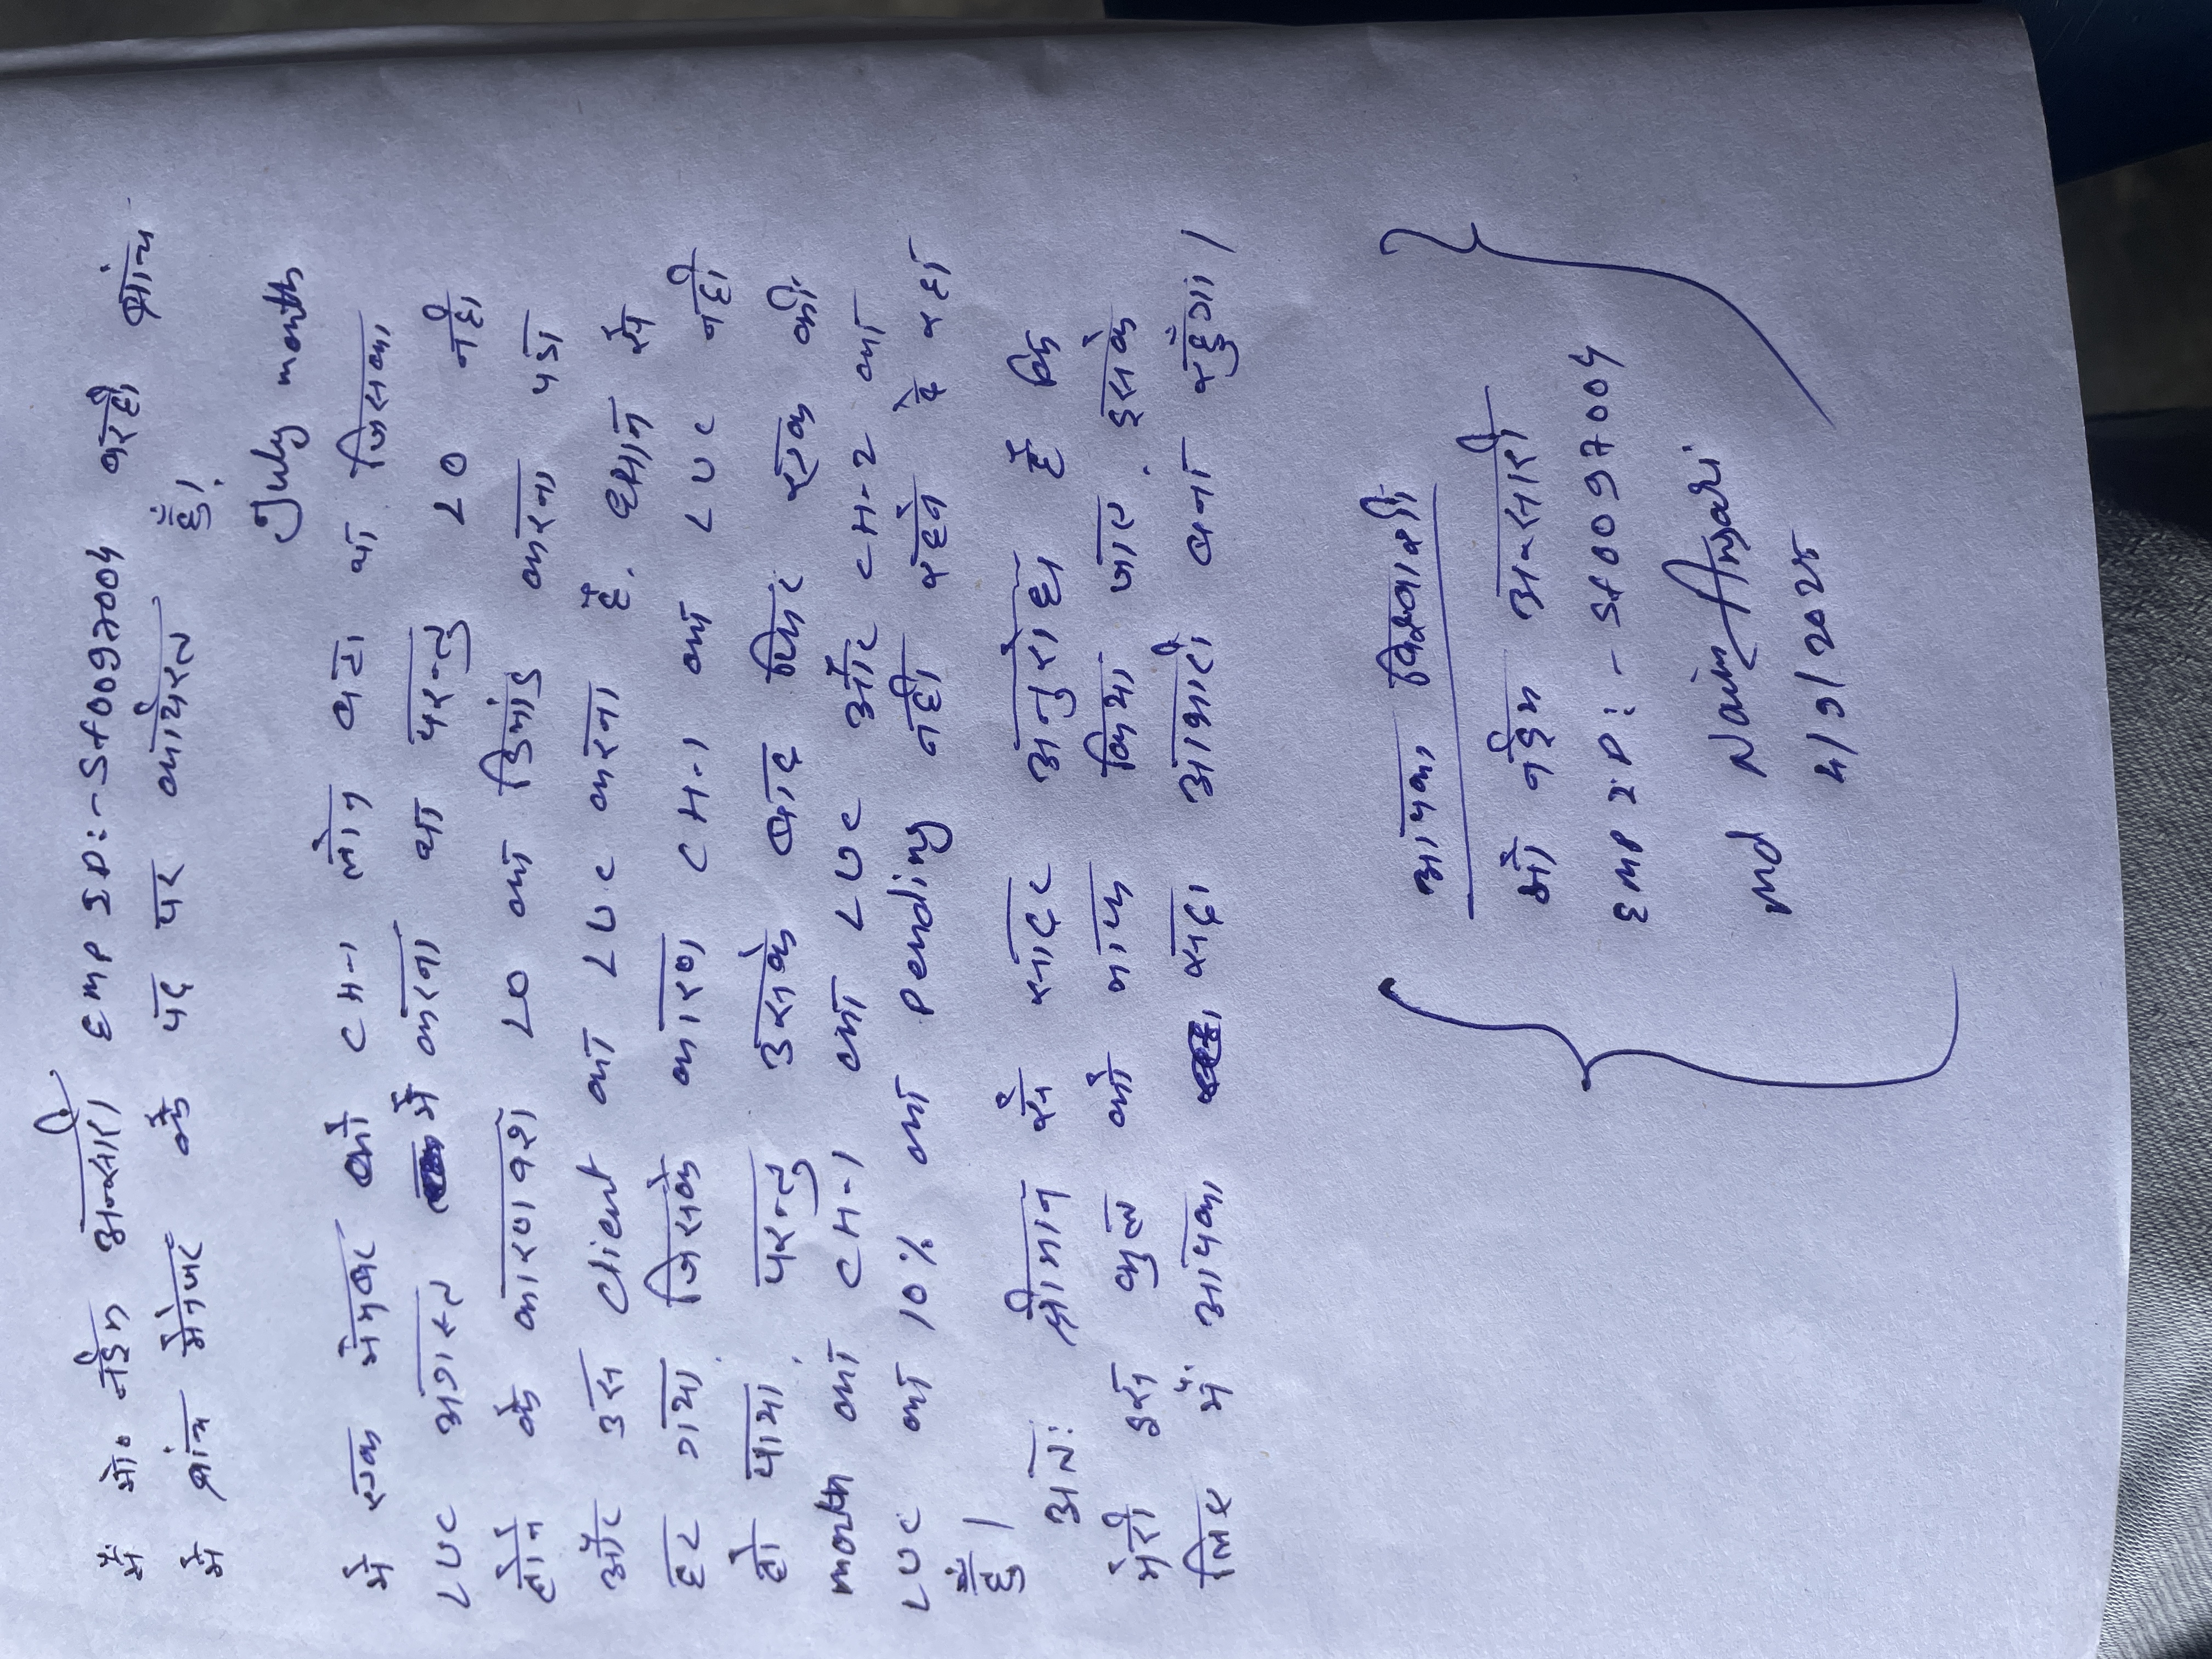 मैं मो० नईम अन्सारी EMP ID:- Sf0097004 बरही ब्रांच
में ब्रांच मैनेजर के पद पर कार्यरत हुँ।
July month
में एक मेम्बर को CH-1 लोन बटा था जिसका
LUC अगस्त में करना था परन्तु LO नही
होने के कारणवश LO को डिमांड करना पडा
और उस Client का LUC करना है. ध्यान से
हट गया जिसके कारण CH-1 का LUC नही
हो पाया. परन्तु उसके बाद फिर एक की
month का CH-1 का LUC और CH-2 का
LUC का 10% का Pending नही रहने दे रहा
हुँ।
अत: श्रीमान से सादर अनुरोध है कि
मेरी इस भुल को माफ किया जाए. इसके
लिए मैं आपका सदा आभारी बना रहुँगा।
आपका विश्वासी
मो नईम अन्सारी
EMP ID:- Sf0097004
Md Naim Ansari
4/9/2025